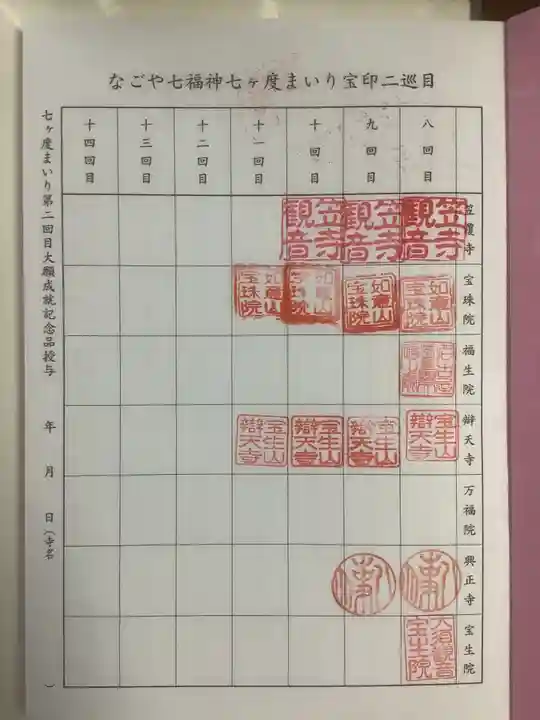 なごや七福神七ヶ度まいり宝印二巡目
八回目
九回目
十回目
十一回目
十二回目
十三回目
十四回目
笠覆寺
宝珠院
福生院
辯天寺
万福院
興正寺
宝生院
笠寺観音
笠寺観音
笠寺観音
如意山宝珠院
如意山宝珠院
如意山宝珠院
如意山宝珠院
宝生山辯天寺
宝生山辯天寺
宝生山辯天寺
宝生山辯天寺
大須観音宝生院
七ヶ度まいり第二回目大願成就記念品授与 年 月 日(寺名 )